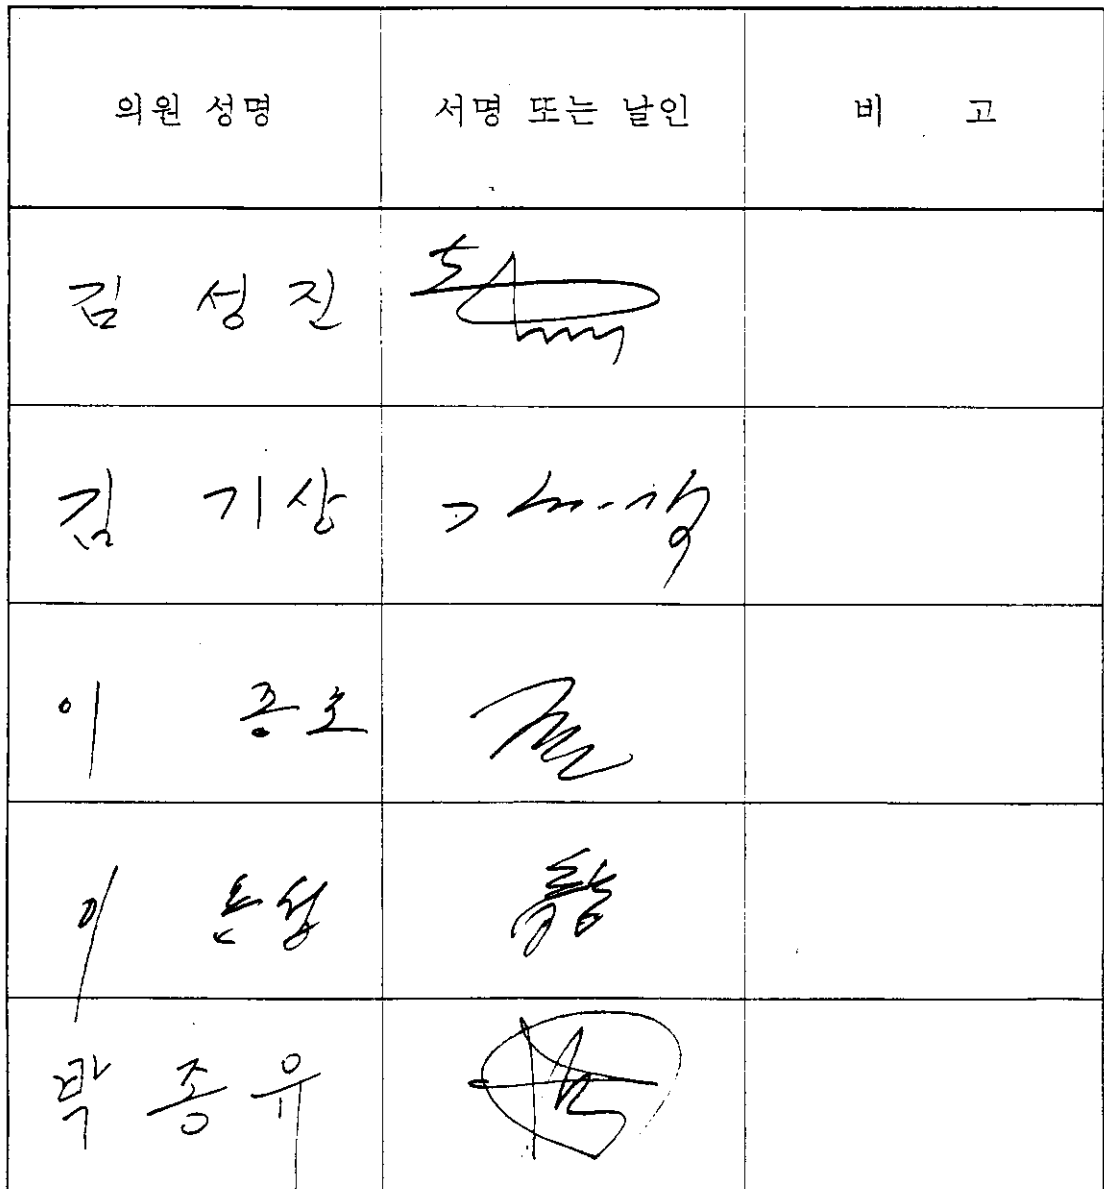 의원 성명 서명 또는 날인 비 고
김 성 진
김 기 상
이 종호
이
박 종 유